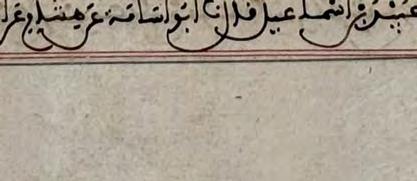 عبيد بن اسماعيل قال نا ابو اسامة عن هشام وعن